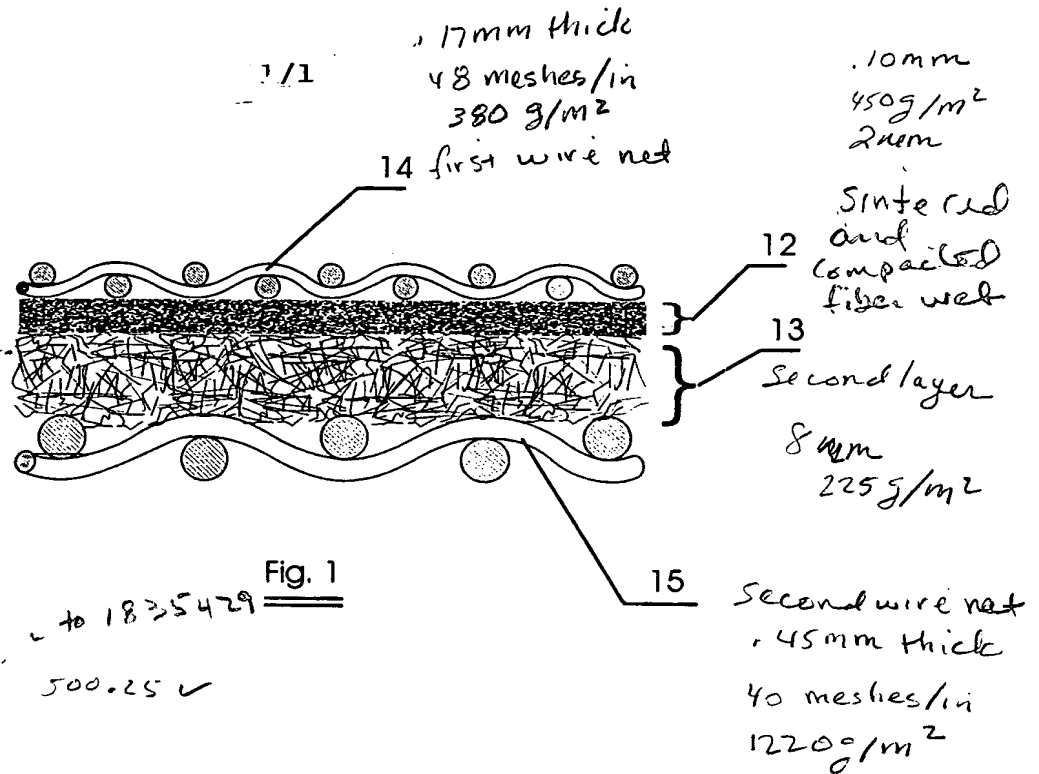 1/1
.17mm thick
48 meshes/in
380 g/m²
14 first wire net
.10mm
450g/m²
Sintered
and
compacted
fiber web
12
13
second layer
8
225g/m²
15
Second wire net
.45mm thick
40 meshes/in
1220g/m²
Fig. 1
to 1835429
500.25 ✓